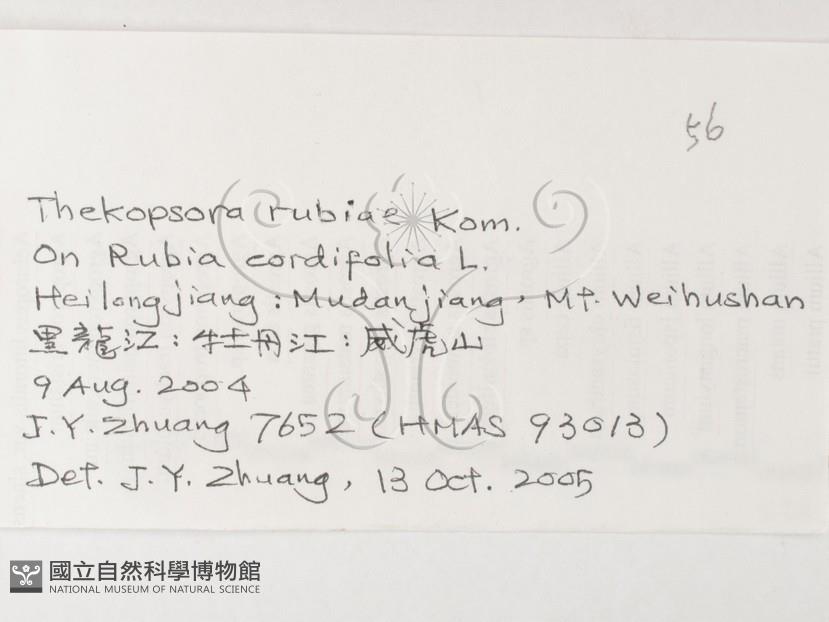 56
Thekopsora rubiae Kom.
On Rubia cordifolia L.
Heilongjiang : Mudanjiang, Mt. Weihushan
黑龍江 : 牡丹江 : 威虎山
9 Aug. 2004
J.Y. Zhuang 7652 (HMAS 93013)
Det. J.Y. Zhuang, 13 Oct. 2005
國立自然科學博物館
NATIONAL MUSEUM OF NATURAL SCIENCE